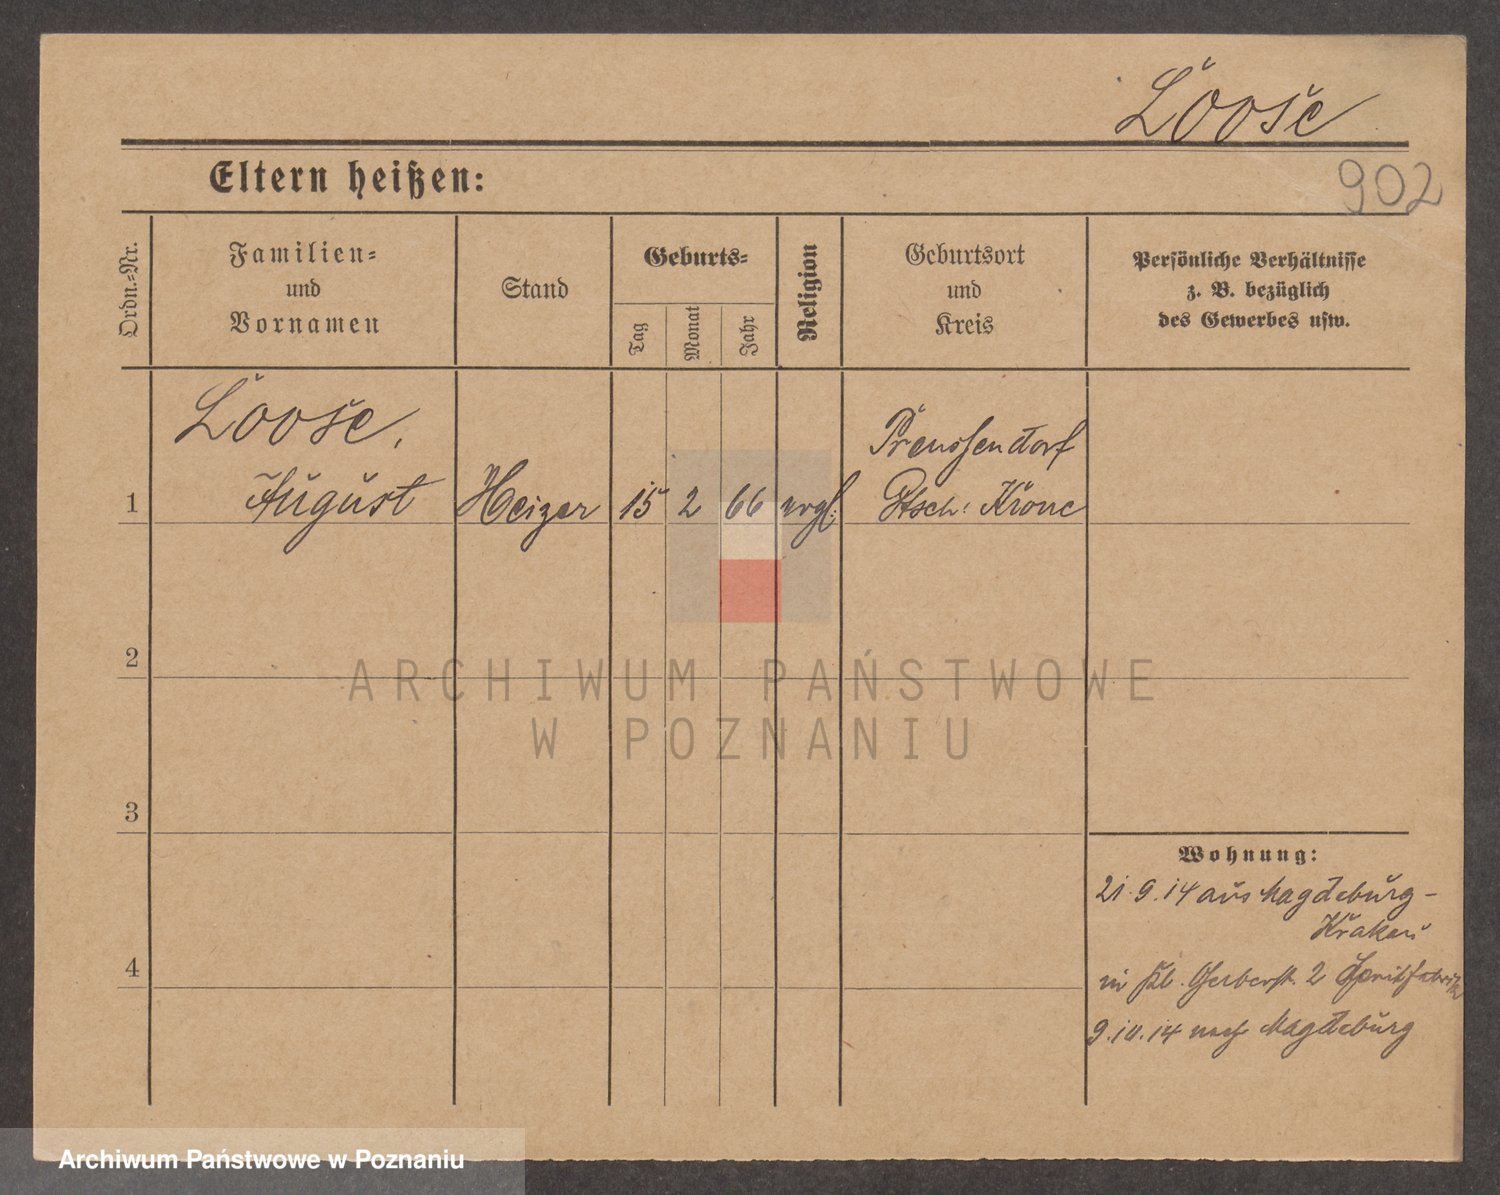 Loose
902
Eltern heißen:
Ordn.-Nr.
Familien-
und
Vornamen
Stand
Geburts-
Tag
Monat
Jahr
Religion
Geburtsort
und
Kreis
Persönliche Verhältnisse
z. B. bezüglich
des Gewerbes usw.
Loose,
August
1
Heizer
15
2
66
evgl.
Preussendorf
Dtsch. Krone
2
3
4
Wohnung:
21.9.14 aus Magdeburg-
Krakau
in Kl. Gerberstr. 2 Spritfabrik
9.10.14 nach Magdeburg
ARCHIWUM PAŃSTWOWE
W POZNANIU
Archiwum Państwowe w Poznaniu